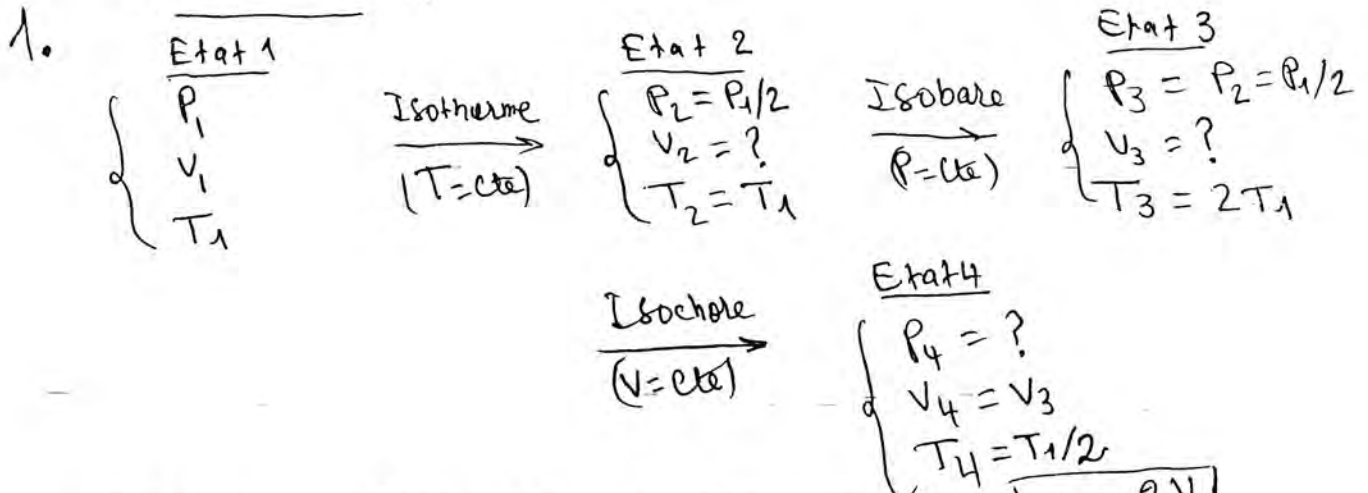 1.
Etat 1
P₁
V₁
T₁
Isotherme
(T=cte)
Etat 2
P₂ = P₁/2
V₂ = ?
T₂ = T₁
Isobare
(P=cte)
Etat 3
P₃ = P₂ = P₁/2
V₃ = ?
T₃ = 2T₁
Isochore
(V=cte)
Etat 4
P₄ = ?
V₄ = V₃
T₄ = T₁/2